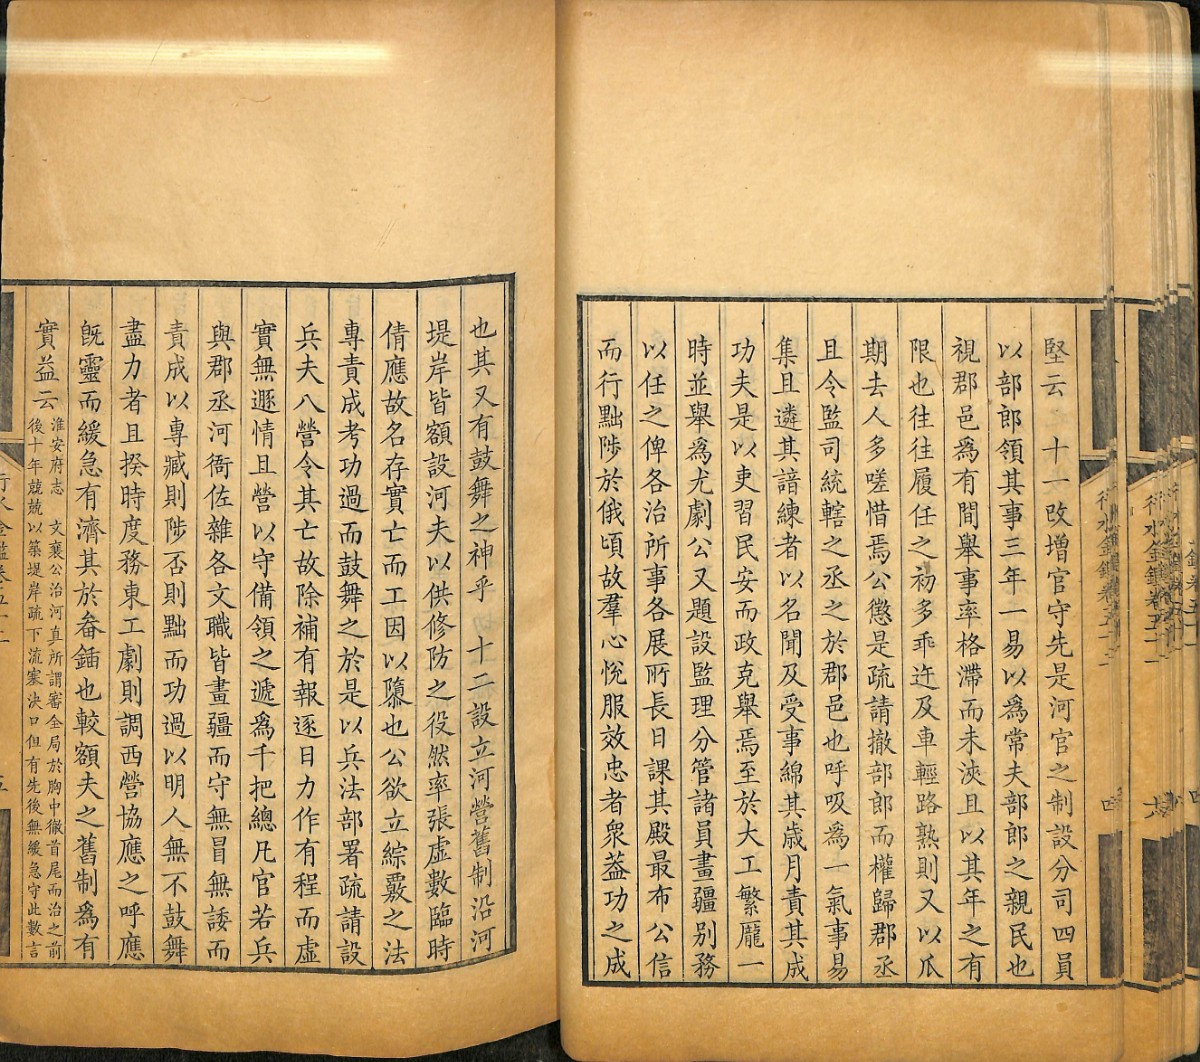 堅云　十一改增官守先是河官之制設分司四員
以部郎領其事三年一易以爲常夫部郎之親民也
視郡邑爲有間舉事率格滯而未浹且以其年之有
限也往往履任之初多乖迕及車輕路熟則又以瓜
期去人多嗟惜焉公懲是疏請撤部郎而權歸郡丞
且令監司統轄之丞之於郡邑也呼吸爲一氣事易
集且遴其諳練者以名聞及受事綿其歲月責其成
功夫是以吏習民安而政克舉焉至於大工繁龐一
時並舉爲尤劇公又題設監理分管諸員畫疆別務
以任之俾各治所事各展所長日課其殿最布公信
而行黜陟於俄頃故羣心悅服效忠者衆益功之成
也其又有鼓舞之神乎　十二設立河營舊制沿河
堤岸皆額設河夫以供修防之役然率張虛數臨時
倩應故名存實亡而工因以隳也公欲立綜覈之法
專責成考功過而鼓舞之於是以兵法部署疏請設
兵夫八營令其亡故除補有報逐日力作有程而虛
實無遯情且營以守備領之遞爲千把總凡官若兵
與郡丞河衙佐雜各文職皆畫疆而守無冒無諉而
責成以專臧則陟否則黜而功過以明人無不鼓舞
盡力者且揆時度務東工劇則調西營協應之呼應
旣靈而緩急有濟其於畚鍤也較額夫之舊制爲有
實益云
淮安府志　文襄公治河真所謂審全局於胸中徹首尾而治之前
後十年兢兢以築堤岸疏下流塞決口但有先後無緩急守此數言
行水金鑑卷五十二
五
行水金鑑卷五十二
四
行水金鑑卷五十二
六